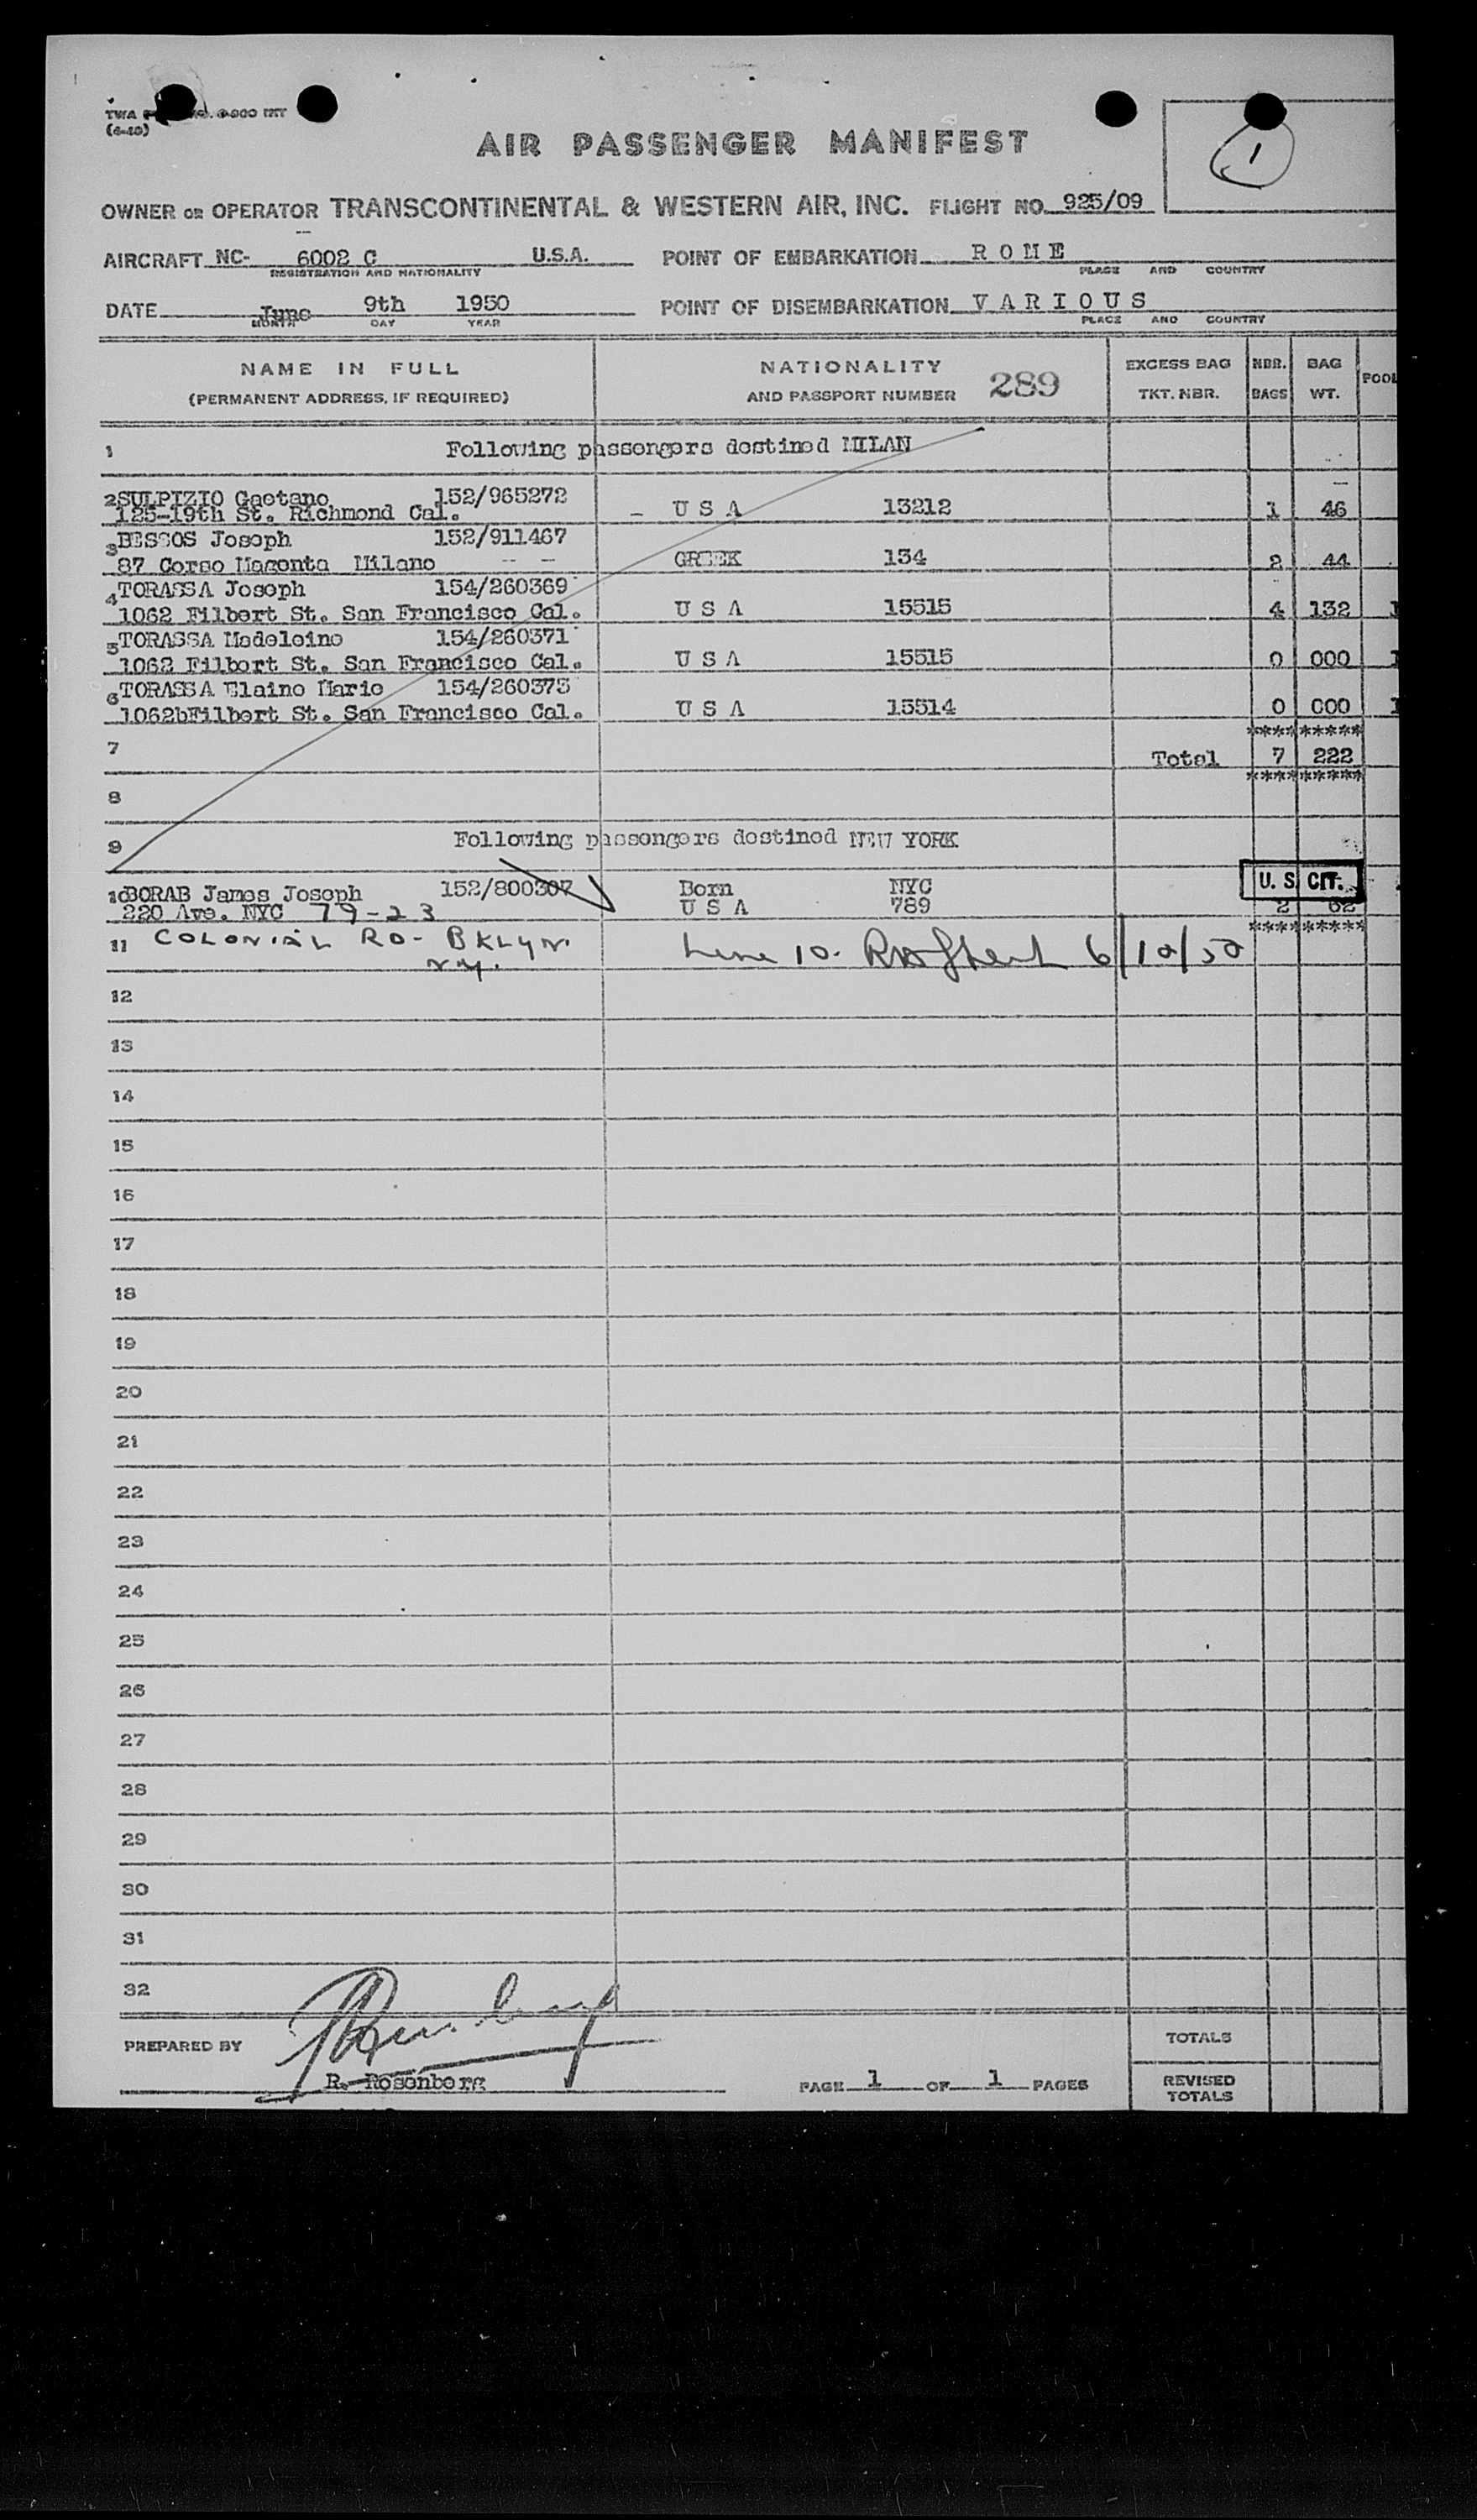 TWA
(4-48)
1
AIR PASSENGER MANIFEST
OWNER OR OPERATOR TRANSCONTINENTAL & WESTERN AIR, INC. FLIGHT NO. 925/09
AIRCRAFT NC- 6002 C U.S.A. POINT OF EMBARKATION R O M E
REGISTRATION AND NATIONALITY PLACE AND COUNTRY
DATE June 9th 1950 POINT OF DISEMBARKATION V A R I O U S
MONTH DAY YEAR PLACE AND COUNTRY
NAME IN FULL NATIONALITY EXCESS BAG NBR. BAG POOL
(PERMANENT ADDRESS, IF REQUIRED) AND PASSPORT NUMBER 289 TKT. NBR. BAGS WT.
1 Following passengers destined MILAN
2 SULPIZIO Gaetano 152/965272
125-19th St. Richmond Cal. - U S A 13212 1 46
3 BESSOS Joseph 152/911467
87 Corso Magenta Milano -- - GREEK 134 2 44
4 TORASSA Joseph 154/260369
1062 Filbert St. San Francisco Cal. U S A 15515 4 132 1
5 TORASSA Madeleine 154/260371
1062 Filbert St. San Francisco Cal. U S A 15515 0 000 1
6 TORASSA Elaine Marie 154/260373
1062bFilbert St. San Francisco Cal. U S A 15514 0 000 1
*********
7 Total 7 222
*********
8
9 Following passengers destined NEW YORK
10 BORAB James Joseph 152/800307 Born NYC U. S. CIT.
220 Ave. NYC 79-23 U S A 789 2 62
*********
11 COLONIAL RD- BKLYN. Line 10. 6/10/50
N.Y.
12
13
14
15
16
17
18
19
20
21
22
23
24
25
26
27
28
29
30
31
32
PREPARED BY TOTALS
R. Rosenberg PAGE 1 OF 1 PAGES REVISED
TOTALS